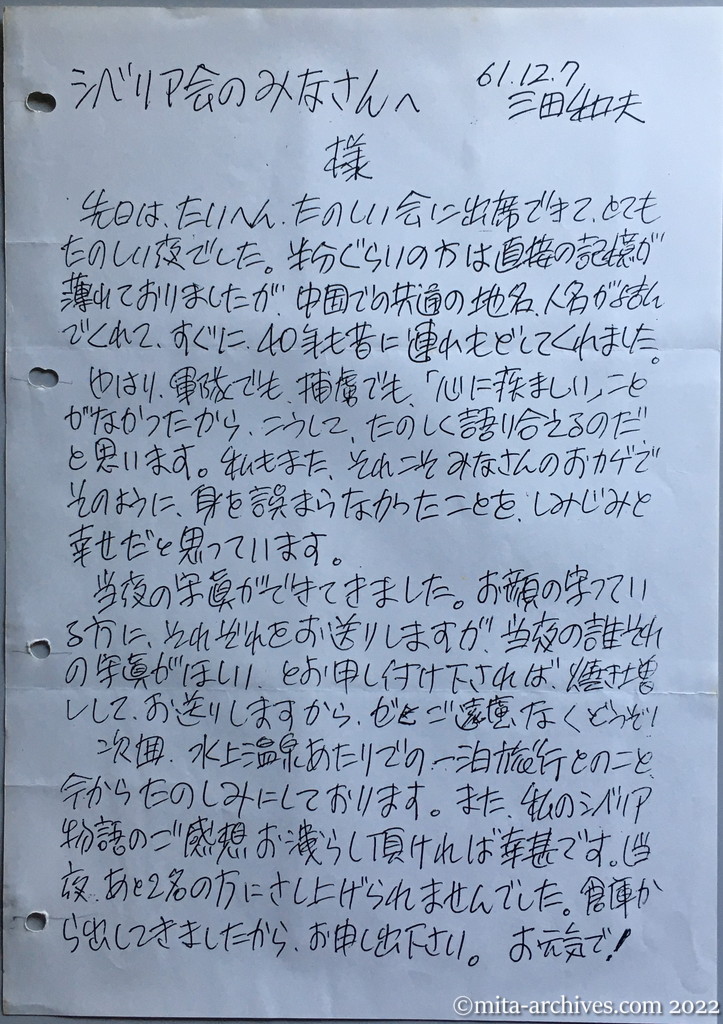 シベリア会のみなさんへ
61.12.7
三田和夫
様
先日は、たいへん、たのしい会に出席できて、とても
たのしい夜でした。半分ぐらいの方は直接の記憶が
薄れておりましたが、中国での共通の地名、人名が結ん
でくれて、すぐに、40年も昔に連れもどしてくれました。
やはり、軍隊でも、捕虜でも、「心に疾ましい」こと
がなかったから、こうして、たのしく語り合えるのだ
と思います。私もまた、それこそみなさんのおカゲで
そのように、身を誤まらなかったことを、しみじみと
幸せだと思っています。
当夜の写真ができてきました。お顔の写ってい
る方に、それぞれをお送りしますが、当夜の誰それ
の写真がほしい、とお申し付け下されば、焼き増
しして、お送りしますから、ご遠慮なくどうぞ!
次回、水上温泉あたりでの一泊旅行とのこと、
今からたのしみにしております。また、私のシベリア
物語のご感想お洩らし頂ければ幸甚です。(当
夜、あと2名の方にさし上げられませんでした。倉庫か
ら出してきましたから、お申し出下さい。 お元気で!
©mita-archives.com 2022